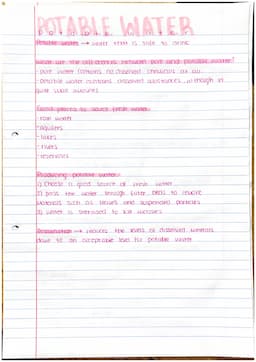 POTABLE WATER
Potable water → water that is safe to drink
What are the differences between pure and potable water?
- pure water contains no dissolved chemicals at all
- potable water contains dissolved substances, although in
quite small amounts
Good places to waters fresh water
- rain water
- aquifers
- lakes
- rivers
- reservoirs
Producing potable water
1) choose a good source of fresh water
2) pass the water through filter beds to remove
materials such as leaves and suspended particles
3) water is sterilised to kill microbes
Desalination → reduces the levels of dissolved minerals
down to an acceptable level for potable water